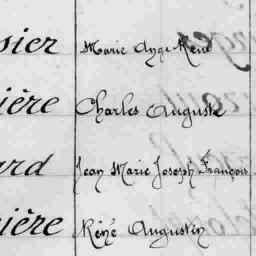 sier Marie Ange René
ière Charles Auguste
ard Jean Marie Joseph François
ière Réné Augustin